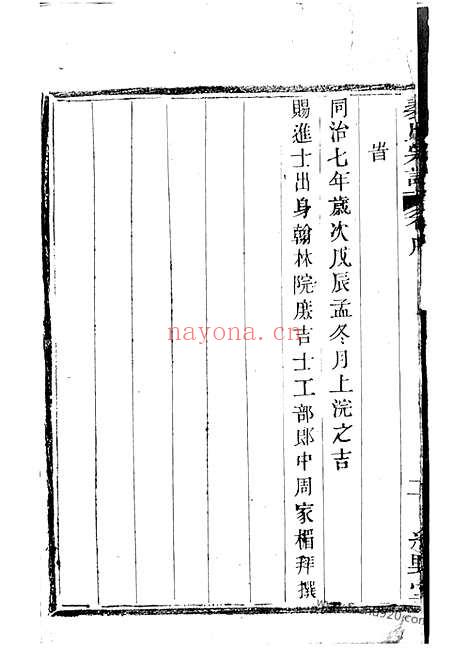 旹
同治七年歲次戊辰孟冬月上浣之吉
賜進士出身翰林院庶吉士工部郎中周家楣拜撰
nayona.cn